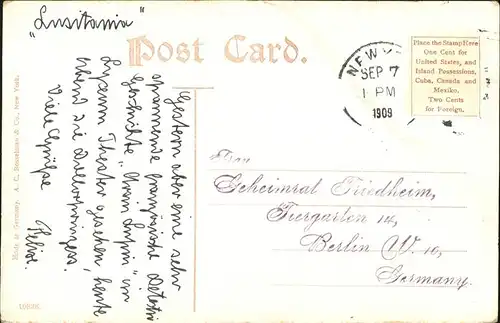 "Lusitania"
Post Card.
NEW Y
SEP 7
1 PM
1909
Place the Stamp Here
One Cent for
United States, and
Island Possessions,
Cuba, Canada and
Mexico.
Two Cents
for Foreign.
Gestern aber eine sehr
spannende französische Detectiv
Geschichte "Arsin Lupin" im
Lyceum Theater gesehen, heute
Abend die Dollarprinzess.
Viele Grüße
Frau
Geheimrat Friedheim,
Tiergarten 14,
Berlin W. 10,
Germany.
Made in Germany. A. C. Bosselman & Co., New York.